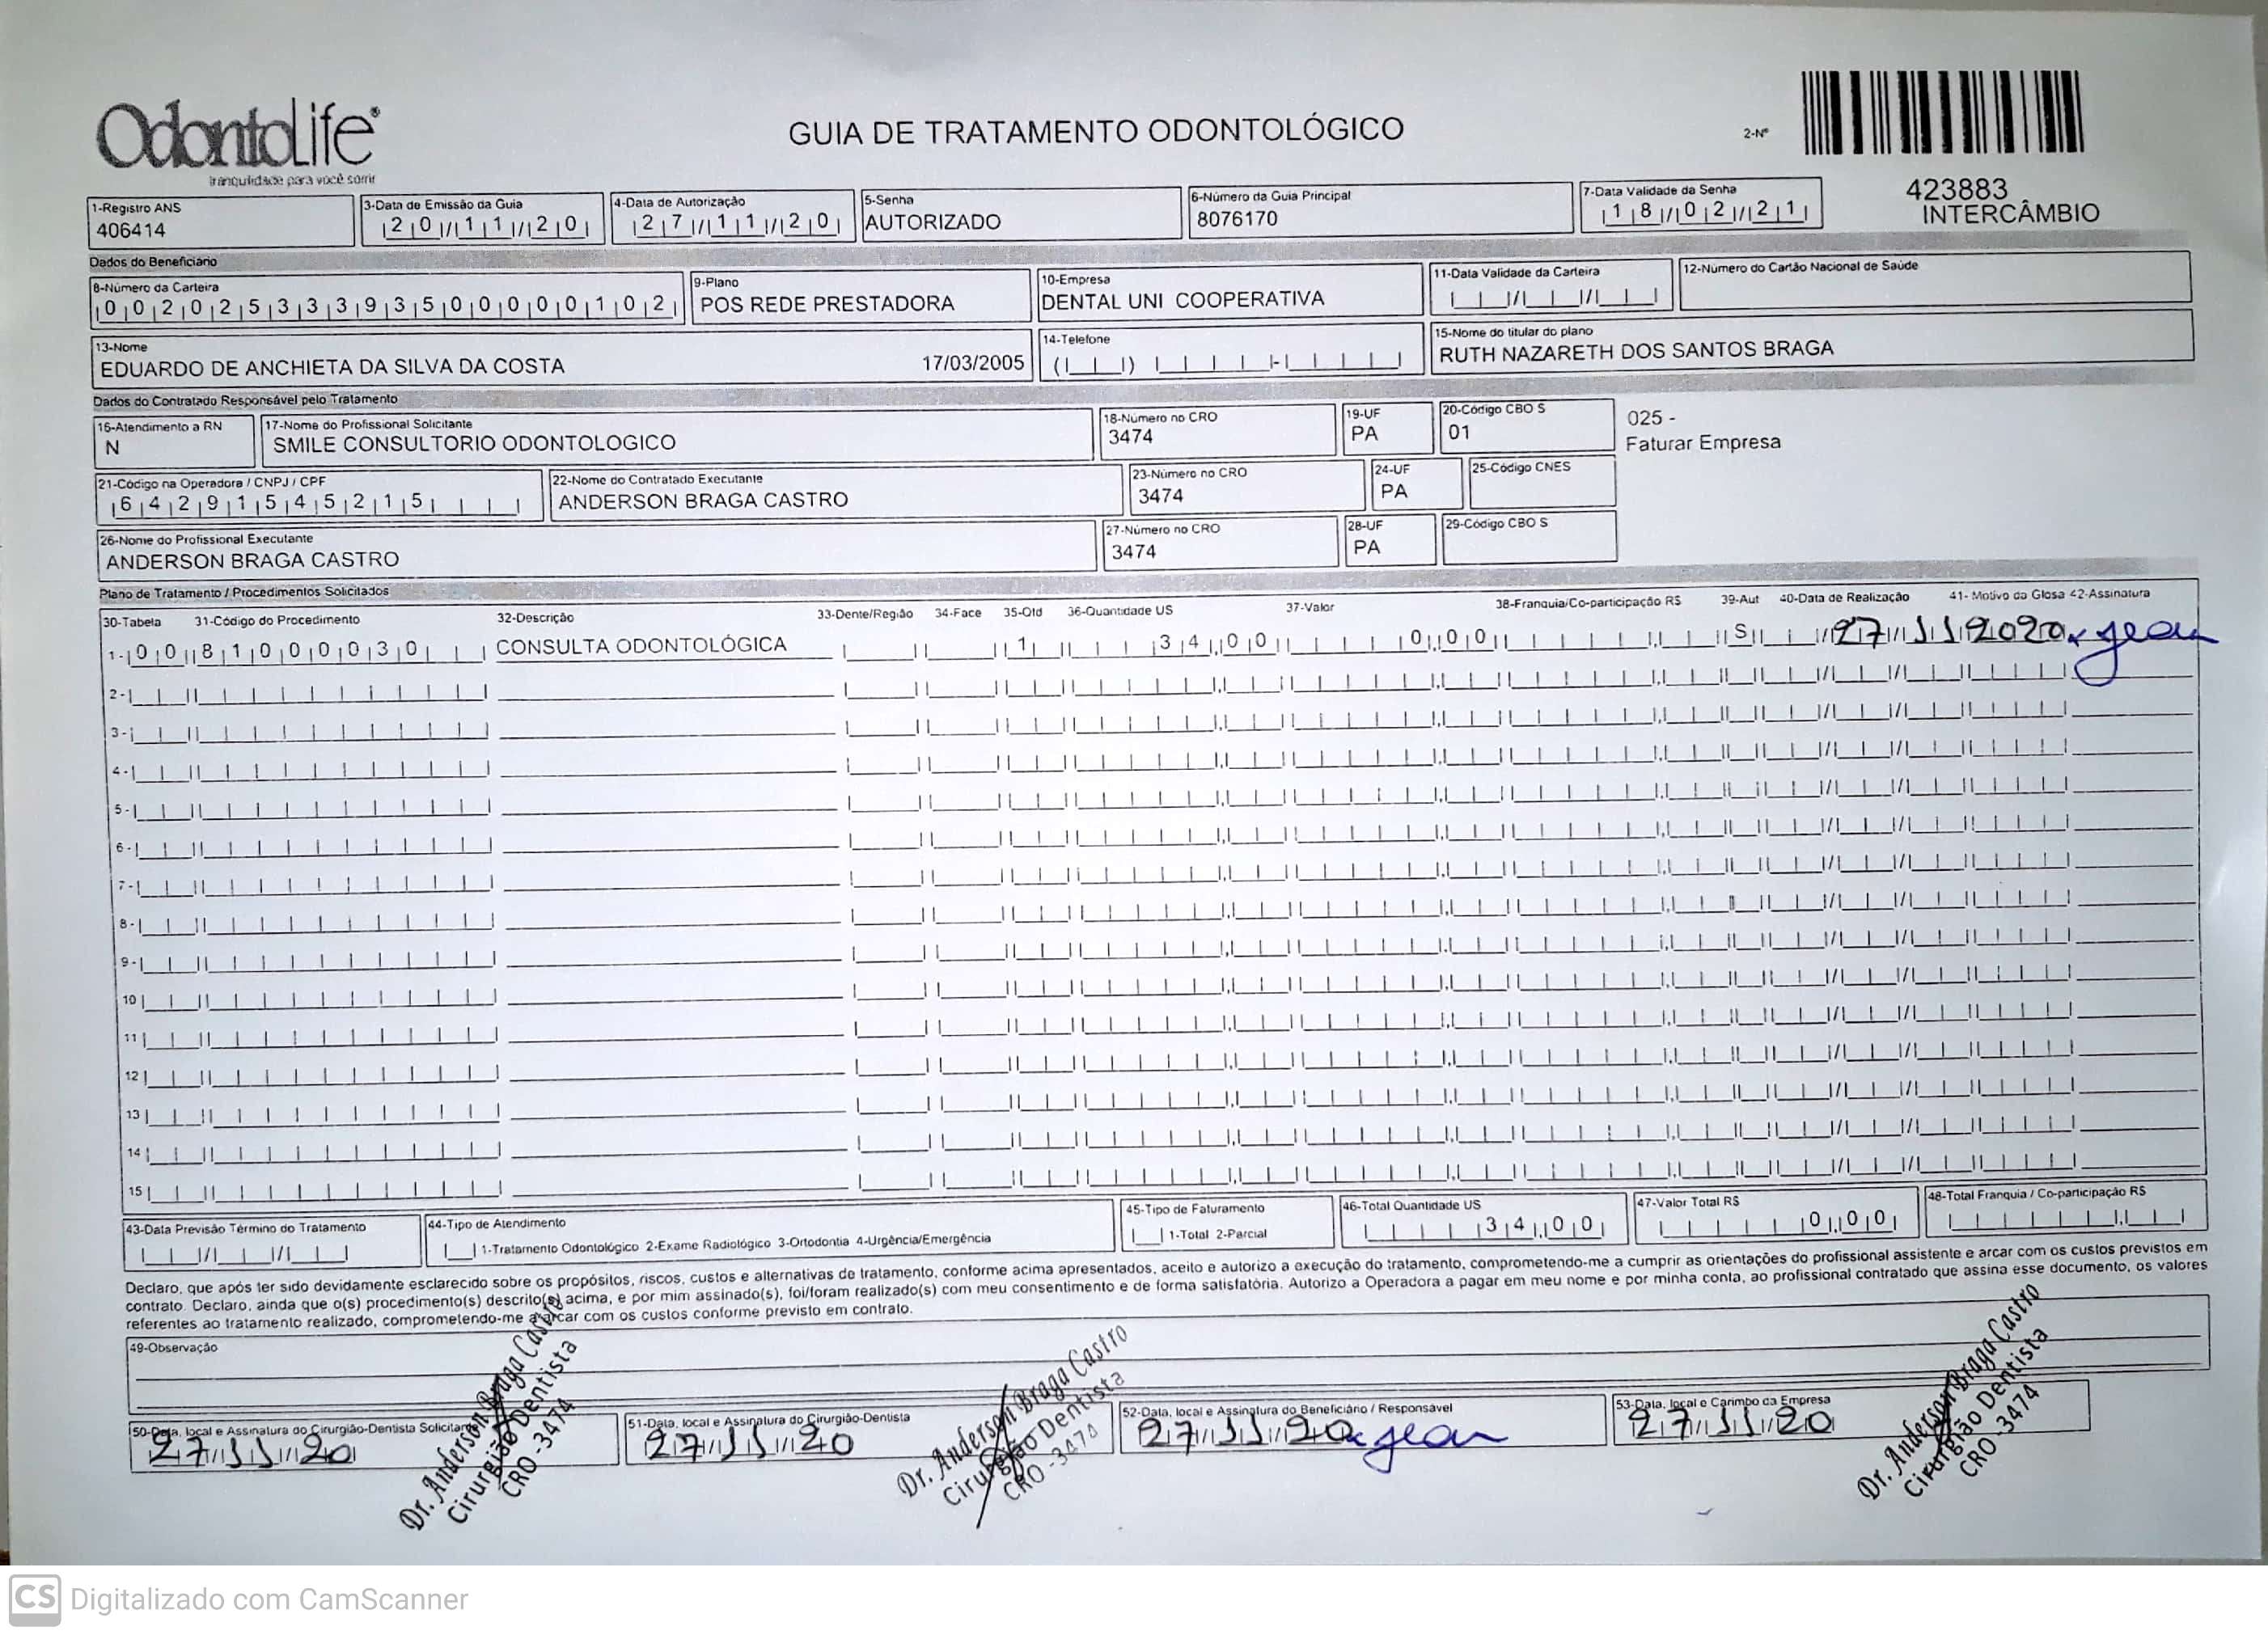 OdontoLife®
tranquilidade para você sorrir
GUIA DE TRATAMENTO ODONTOLÓGICO
2-Nº
423883
INTERCÂMBIO
1-Registro ANS
406414
3-Data de Emissão da Guia
20/11/20
4-Data de Autorização
27/11/20
5-Senha
AUTORIZADO
6-Número da Guia Principal
8076170
7-Data Validade da Senha
18/02/21
Dados do Beneficiário
8-Número da Carteira
00202533393500000102
9-Plano
POS REDE PRESTADORA
10-Empresa
DENTAL UNI COOPERATIVA
11-Data Validade da Carteira
12-Número do Cartão Nacional de Saúde
13-Nome
EDUARDO DE ANCHIETA DA SILVA DA COSTA 17/03/2005
14-Telefone
15-Nome do titular do plano
RUTH NAZARETH DOS SANTOS BRAGA
Dados do Contratado Responsável pelo Tratamento
16-Atendimento a RN
N
17-Nome do Profissional Solicitante
SMILE CONSULTORIO ODONTOLOGICO
18-Número no CRO
3474
19-UF
PA
20-Código CBO S
01
025 -
Faturar Empresa
21-Código na Operadora / CNPJ / CPF
64291545215
22-Nome do Contratado Executante
ANDERSON BRAGA CASTRO
23-Número no CRO
3474
24-UF
PA
25-Código CNES
26-Nome do Profissional Executante
ANDERSON BRAGA CASTRO
27-Número no CRO
3474
28-UF
PA
29-Código CBO S
Plano de Tratamento / Procedimentos Solicitados
30-Tabela 31-Código do Procedimento 32-Descrição 33-Dente/Região 34-Face 35-Qtd 36-Quantidade US 37-Valor 38-Franquia/Co-participação R$ 39-Aut 40-Data de Realização 41- Motivo da Glosa 42-Assinatura
1- 00 81000030 CONSULTA ODONTOLÓGICA 1 34,00 0,00 S 27/11/2020 x jean
2-
3-
4-
5-
6-
7-
8-
9-
10
11
12
13
14
15
43-Data Previsão Término do Tratamento
44-Tipo de Atendimento
1-Tratamento Odontológico 2-Exame Radiológico 3-Ortodontia 4-Urgência/Emergência
45-Tipo de Faturamento
1-Total 2-Parcial
46-Total Quantidade US
34,00
47-Valor Total R$
0,00
48-Total Franquia / Co-participação R$
Declaro, que após ter sido devidamente esclarecido sobre os propósitos, riscos, custos e alternativas de tratamento, conforme acima apresentados, aceito e autorizo a execução do tratamento, comprometendo-me a cumprir as orientações do profissional assistente e arcar com os custos previstos em
contrato. Declaro, ainda que o(s) procedimento(s) descrito(s) acima, e por mim assinado(s), foi/foram realizado(s) com meu consentimento e de forma satisfatória. Autorizo a Operadora a pagar em meu nome e por minha conta, ao profissional contratado que assina esse documento, os valores
referentes ao tratamento realizado, comprometendo-me a arcar com os custos conforme previsto em contrato.
49-Observação
50-Data, local e Assinatura do Cirurgião-Dentista Solicitante
27/11/20
Dr. Anderson Braga Castro
Cirurgião Dentista
CRO - 3474
51-Data, local e Assinatura do Cirurgião-Dentista
27/11/20
Dr. Anderson Braga Castro
Cirurgião Dentista
CRO - 3474
52-Data, local e Assinatura do Beneficiário / Responsável
27/11/20 x jean
53-Data, local e Carimbo da Empresa
27/11/20
Dr. Anderson Braga Castro
Cirurgião Dentista
CRO - 3474
CS Digitalizado com CamScanner